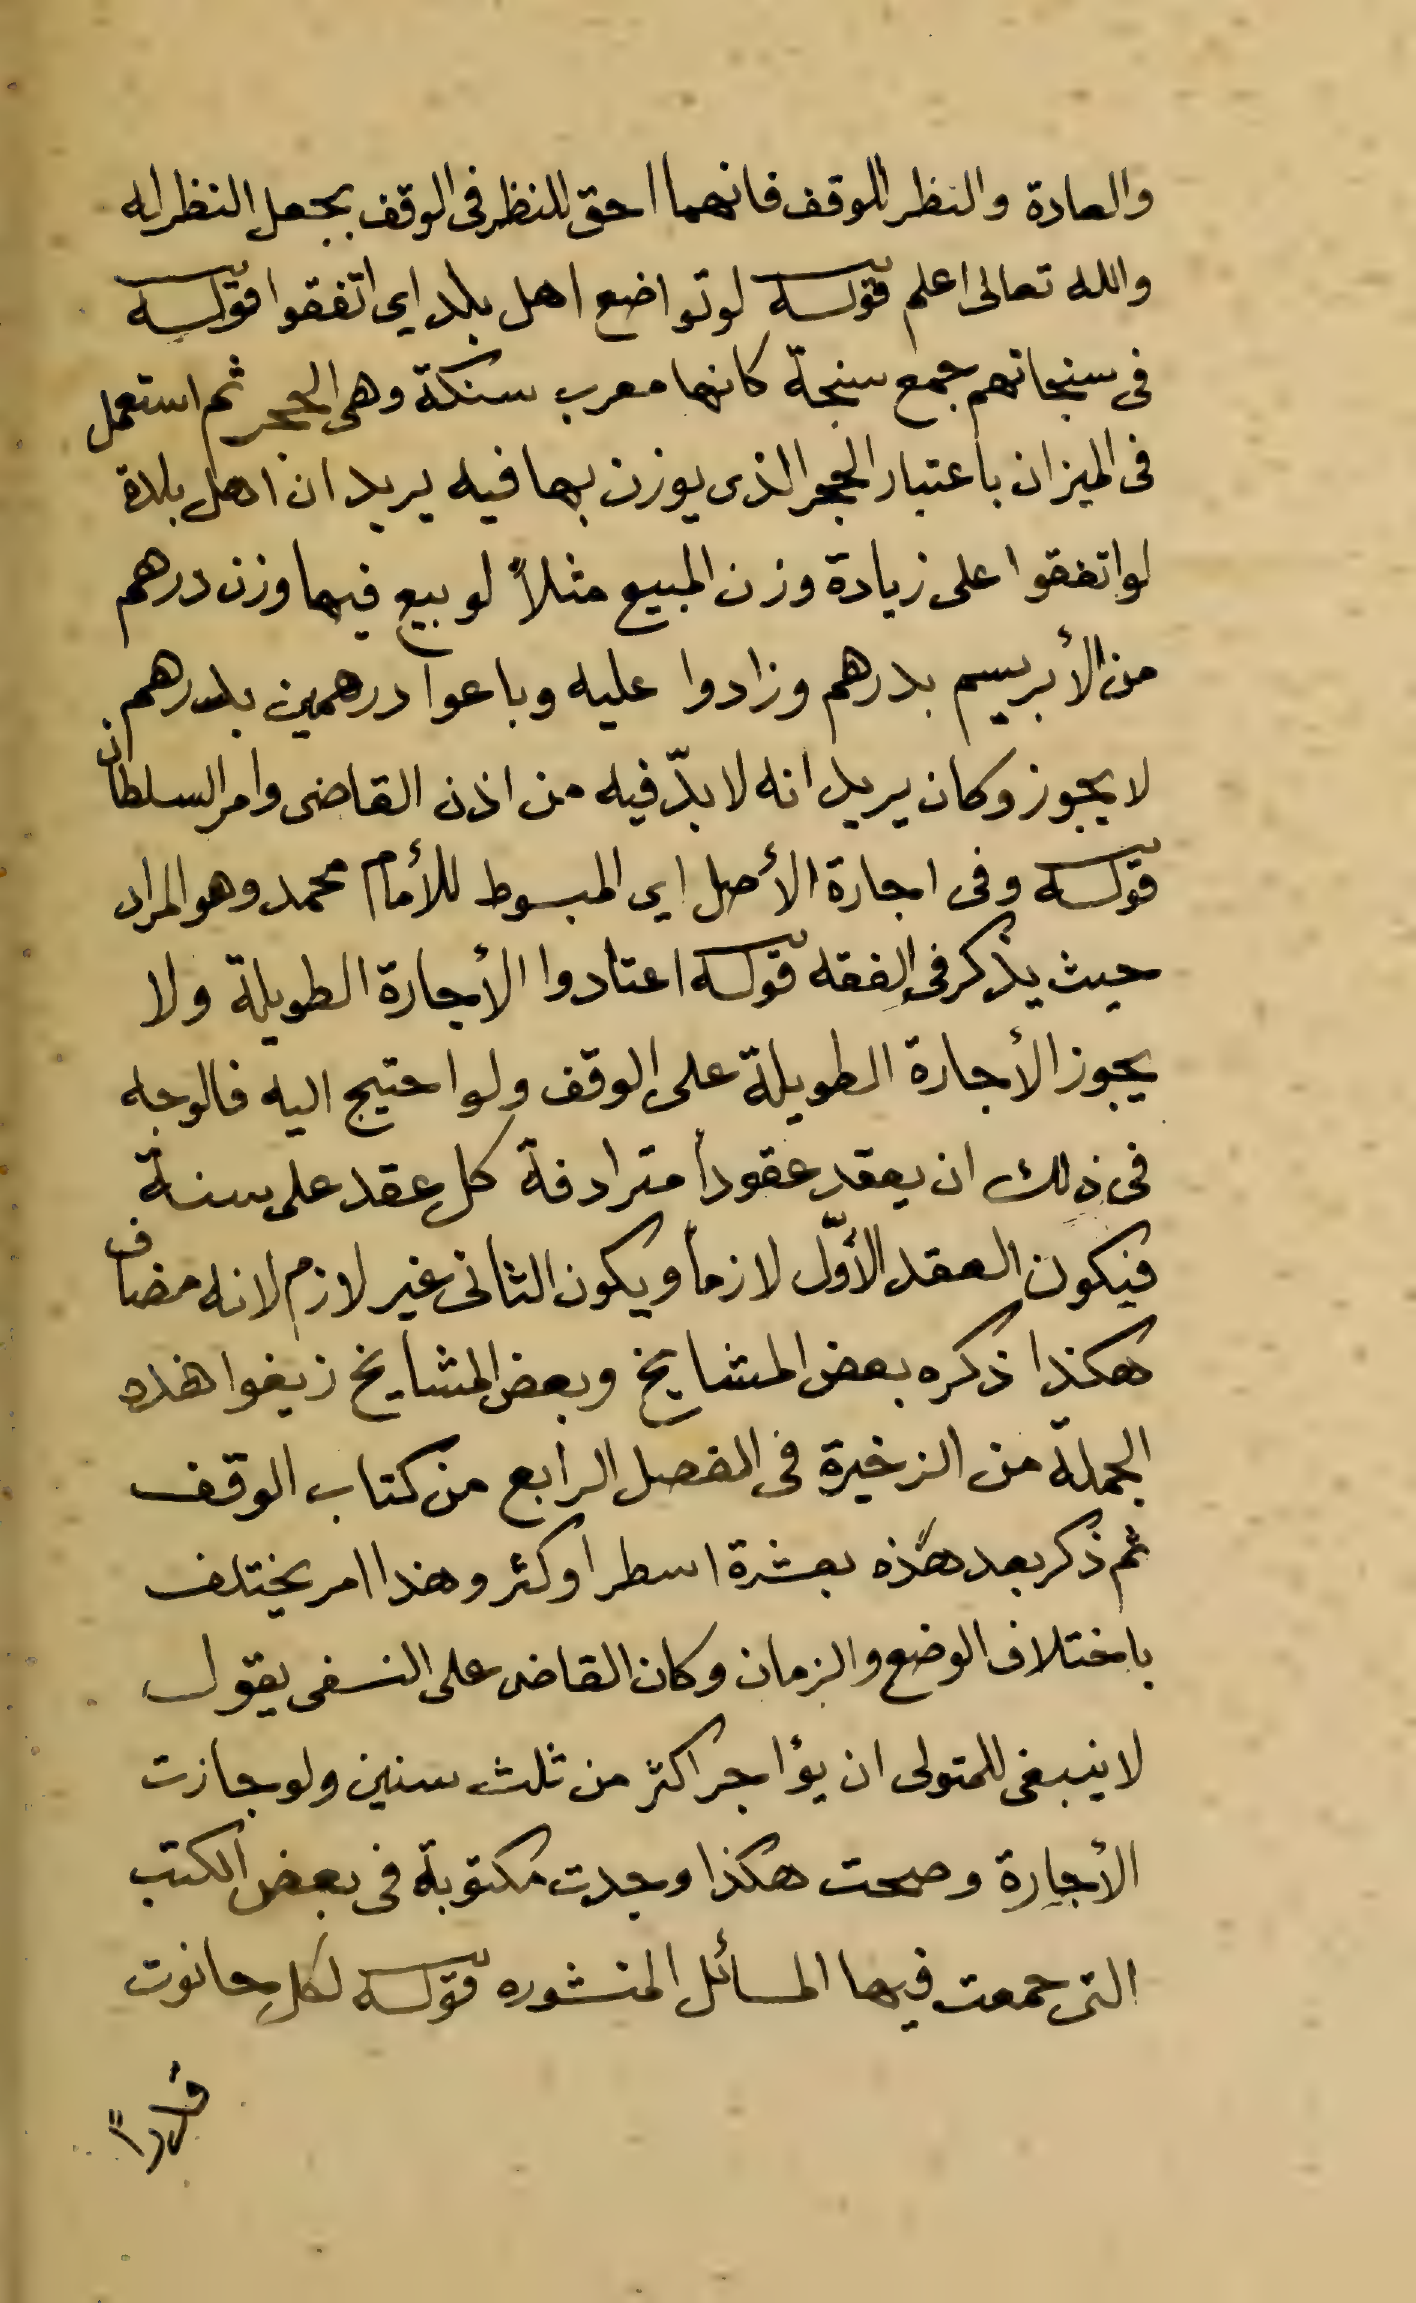 والعادة والنظر للوقف فانهما احق للنظر فى الوقف يجعل النظر له
والله تعالى اعلم قوله لو تواضع اهل بلد اى اتفقوا قوله
فى سنجاتهم جمع سنجة كانها معرب سنكة وهى الحجر ثم استعمل
فى الميزان باعتبار الحجر الذى يوزن بها فيه يريد ان اهل بلدة
لو اتفقوا على زيادة وزن المبيع مثلاً لو بيع فيها وزن درهم
من الأبريسم بدرهم وزادوا عليه وباعوا درهمين بدرهم
لا يجوز وكان يريد انه لا بدّ فيه من اذن القاضى وامر السلطان
قوله وفى اجارة الأصل اى المبسوط للأمام محمد وهو المراد
حيث يذكر فى الفقه قوله اعتادوا الأجارة الطويلة ولا
يجوز الأجارة الطويلة على الوقف ولو احتيج اليه فالوجه
فى ذلك ان يعقد عقوداً مترادفة كل عقد على سنة
فيكون العقد الأوّل لازماً ويكون الثانى غير لازم لانه مضاف
هكذا ذكره بعض المشايخ وبعض المشايخ زيفوا هذه
الجملة من الزخيرة فى الفصل الرابع من كتاب الوقف
ثم ذكر بعد هذه بعشرة اسطر اوكثر وهذا امر يختلف
باختلاف الوضع والزمان وكان القاضى على النسفى يقول
لا ينبغى للمتولى ان يؤاجر اكثر من ثلث سنين ولو جازت
الأجارة وصحت هكذا وجدت مكتوبة فى بعض الكتب
التى جمعت فيها المسائل المنشوره قوله لكل حانوت